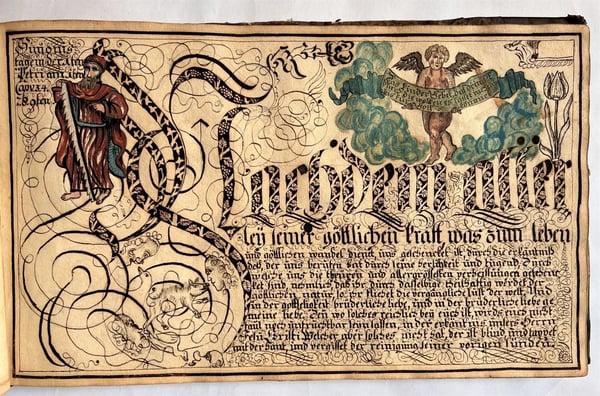 Simonis
Petri am
Nachdem aller
ley seiner göttlichen kraft was zum leben
und göttlichen wandel dienet, uns geschencket ist, durch die erkäntnüß
des, der uns berufen hat durch seine herlichkeit und tugend,
uns die theuren und allergrössesten verheissungen geschenc
ket sind, nämlich, daß ihr durch dasselbige theilhaftig werdet der
göttlichen natur, so ihr fliehet die vergängliche lust der welt. Und
in der gottseligkeit brüderliche liebe, und in der brüderliche liebe ge
meine liebe. Den wo solches reichlich bey euch ist, wirds euch nicht
faul noch unfruchtbar sein lassen, in der erkentnis unsers Herrn
Jesu Kristi. Welcher aber solches nicht hat, der ist blind und tappet
mit der hant, und vergisset der reinigung seiner vorigen sünden.